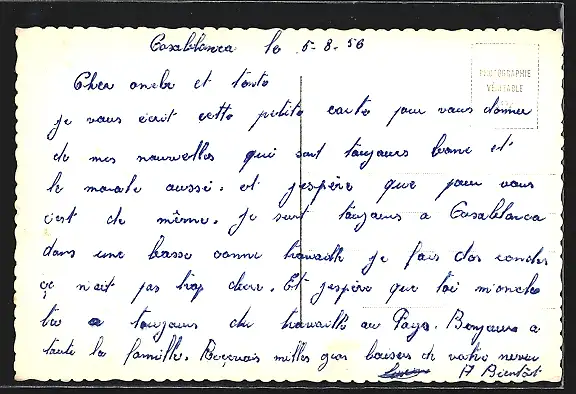 Casablanca le 5-8-56
PHOTOGRAPHIE
VÉRITABLE
Cher oncle et tante
je vous écrit cette petite carte pour vous donner
de mes nouvelles qui sont toujours bonne et
le morale aussi. et j'espère que pour vous
c'est de même. Je suis toujours a Casablanca
dans une basse comme travaille je fais des rondes
ç n'ait pas trop dure. Et j'espère que toi m'oncle
tu a toujours du travaille au Pays. Bonjours a
toute la famille. Reçevais milles gros baises de votre neveu
A Bientôt